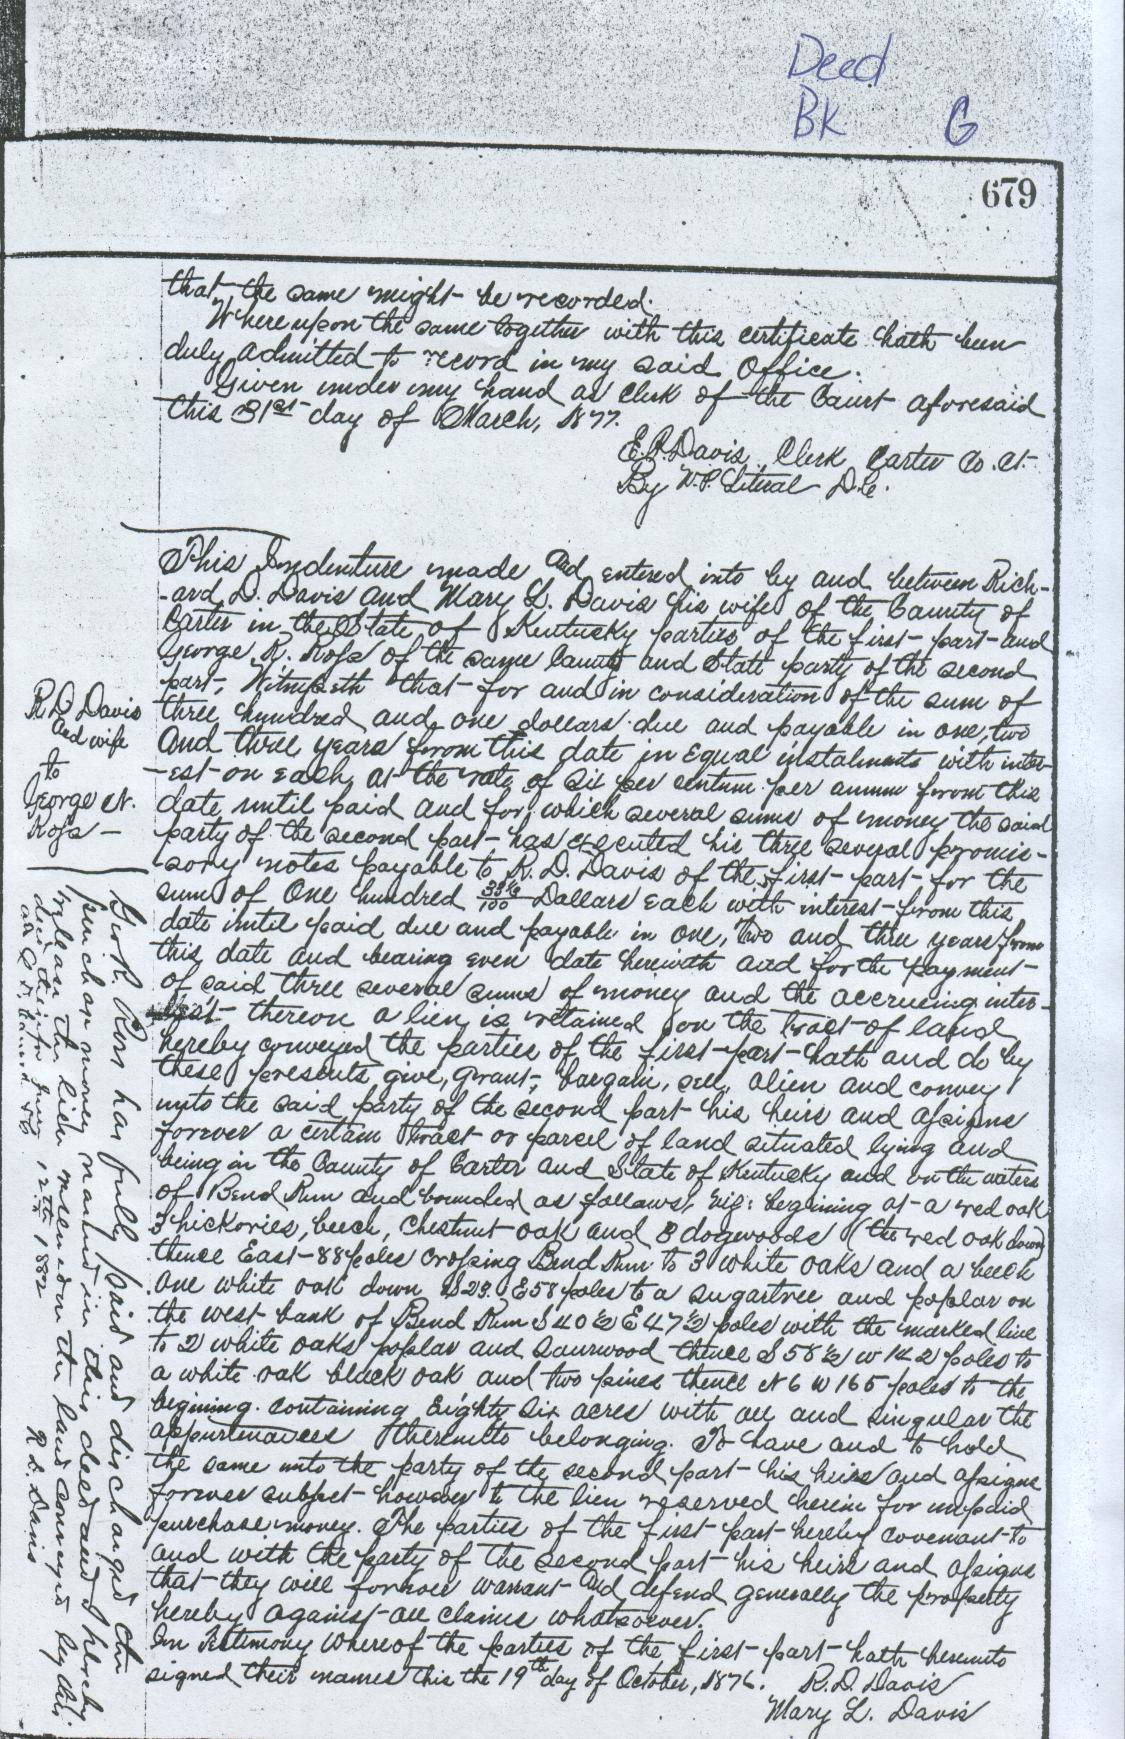 Deed
BK G
679
that the same might be recorded.
Whereupon the same together with this certificate hath been
duly admitted to record in my said Office.
Given under my hand as Clerk of the Court aforesaid
this 31st day of March, 1877.
E.P. Davis Clerk Carter Co. Ct.
By W.P. Literal D.C.
This Indenture made and entered into by and between Rich-
-ard D. Davis and Mary L. Davis his wife of the County of
Carter in the State of Kentucky parties of the first part and
George R. Ross of the same County and State party of the second
part, Witnesseth that for and in consideration of the sum of
three hundred and one dollars due and payable in one, two
and three years from this date in Equal instalments with inter-
-est on each at the rate of six per centum per annum from this
date until paid and for which several sums of money the said
party of the second part has executed his three several promis-
-sory notes payable to R. D. Davis of the first part for the
sum of One hundred 33⅓/100 Dollars each with interest from this
date until paid due and payable in one, two and three years from
this date and bearing even date herewith and for the payment
of said three several sums of money and the accrueing inter-
-est thereon a lien is retained on the tract of land
hereby conveyed the parties of the first part hath and do by
these presents, give, grant, bargain, sell, alien and convey
unto the said party of the second part his heirs and assigns
forever a certain tract or parcel of land situated lying and
being in the County of Carter and State of Kentucky and on the waters
of Bend Run and bounded as follows, viz: begining at a red oak
3 hickories, beech, Chestnut oak and 3 dogwoods (the red oak down)
thence East 88 poles crossing Bend Run to 3 white oaks and a beech
one white oak down S 23 E 58 poles to a sugartree and poplar on
the west bank of Bend Run S 40½ E 47½ poles with the marked line
to 2 white oaks poplar and sourwood thence S 58½ W 142 poles to
a white oak black oak and two pines thence N 6 W 165 poles to the
begining. containing Eighty six acres with all and singular the
appurtenances thereunto belonging. To have and to hold
the same unto the party of the second part his heirs and assigns
forever subject however to the lien reserved herein for unpaid
purchase money. The parties of the first part hereby covenant to
and with the party of the second part his heirs and assigns
that they will forever warrant and defend generally the property
hereby against all claims whatsoever.
In Testimony whereof the parties of the first part hath hereunto
signed their names this the 19th day of October, 1876. R. D. Davis
Mary L. Davis
R D Davis
and wife
to
George R.
Ross
Geo. R. Ross has fully paid and discharged the
purchase money named in this deed and I hereby
release the lien mentioned in the land conveyed by this
deed this June 12th 1882
R. D. Davis